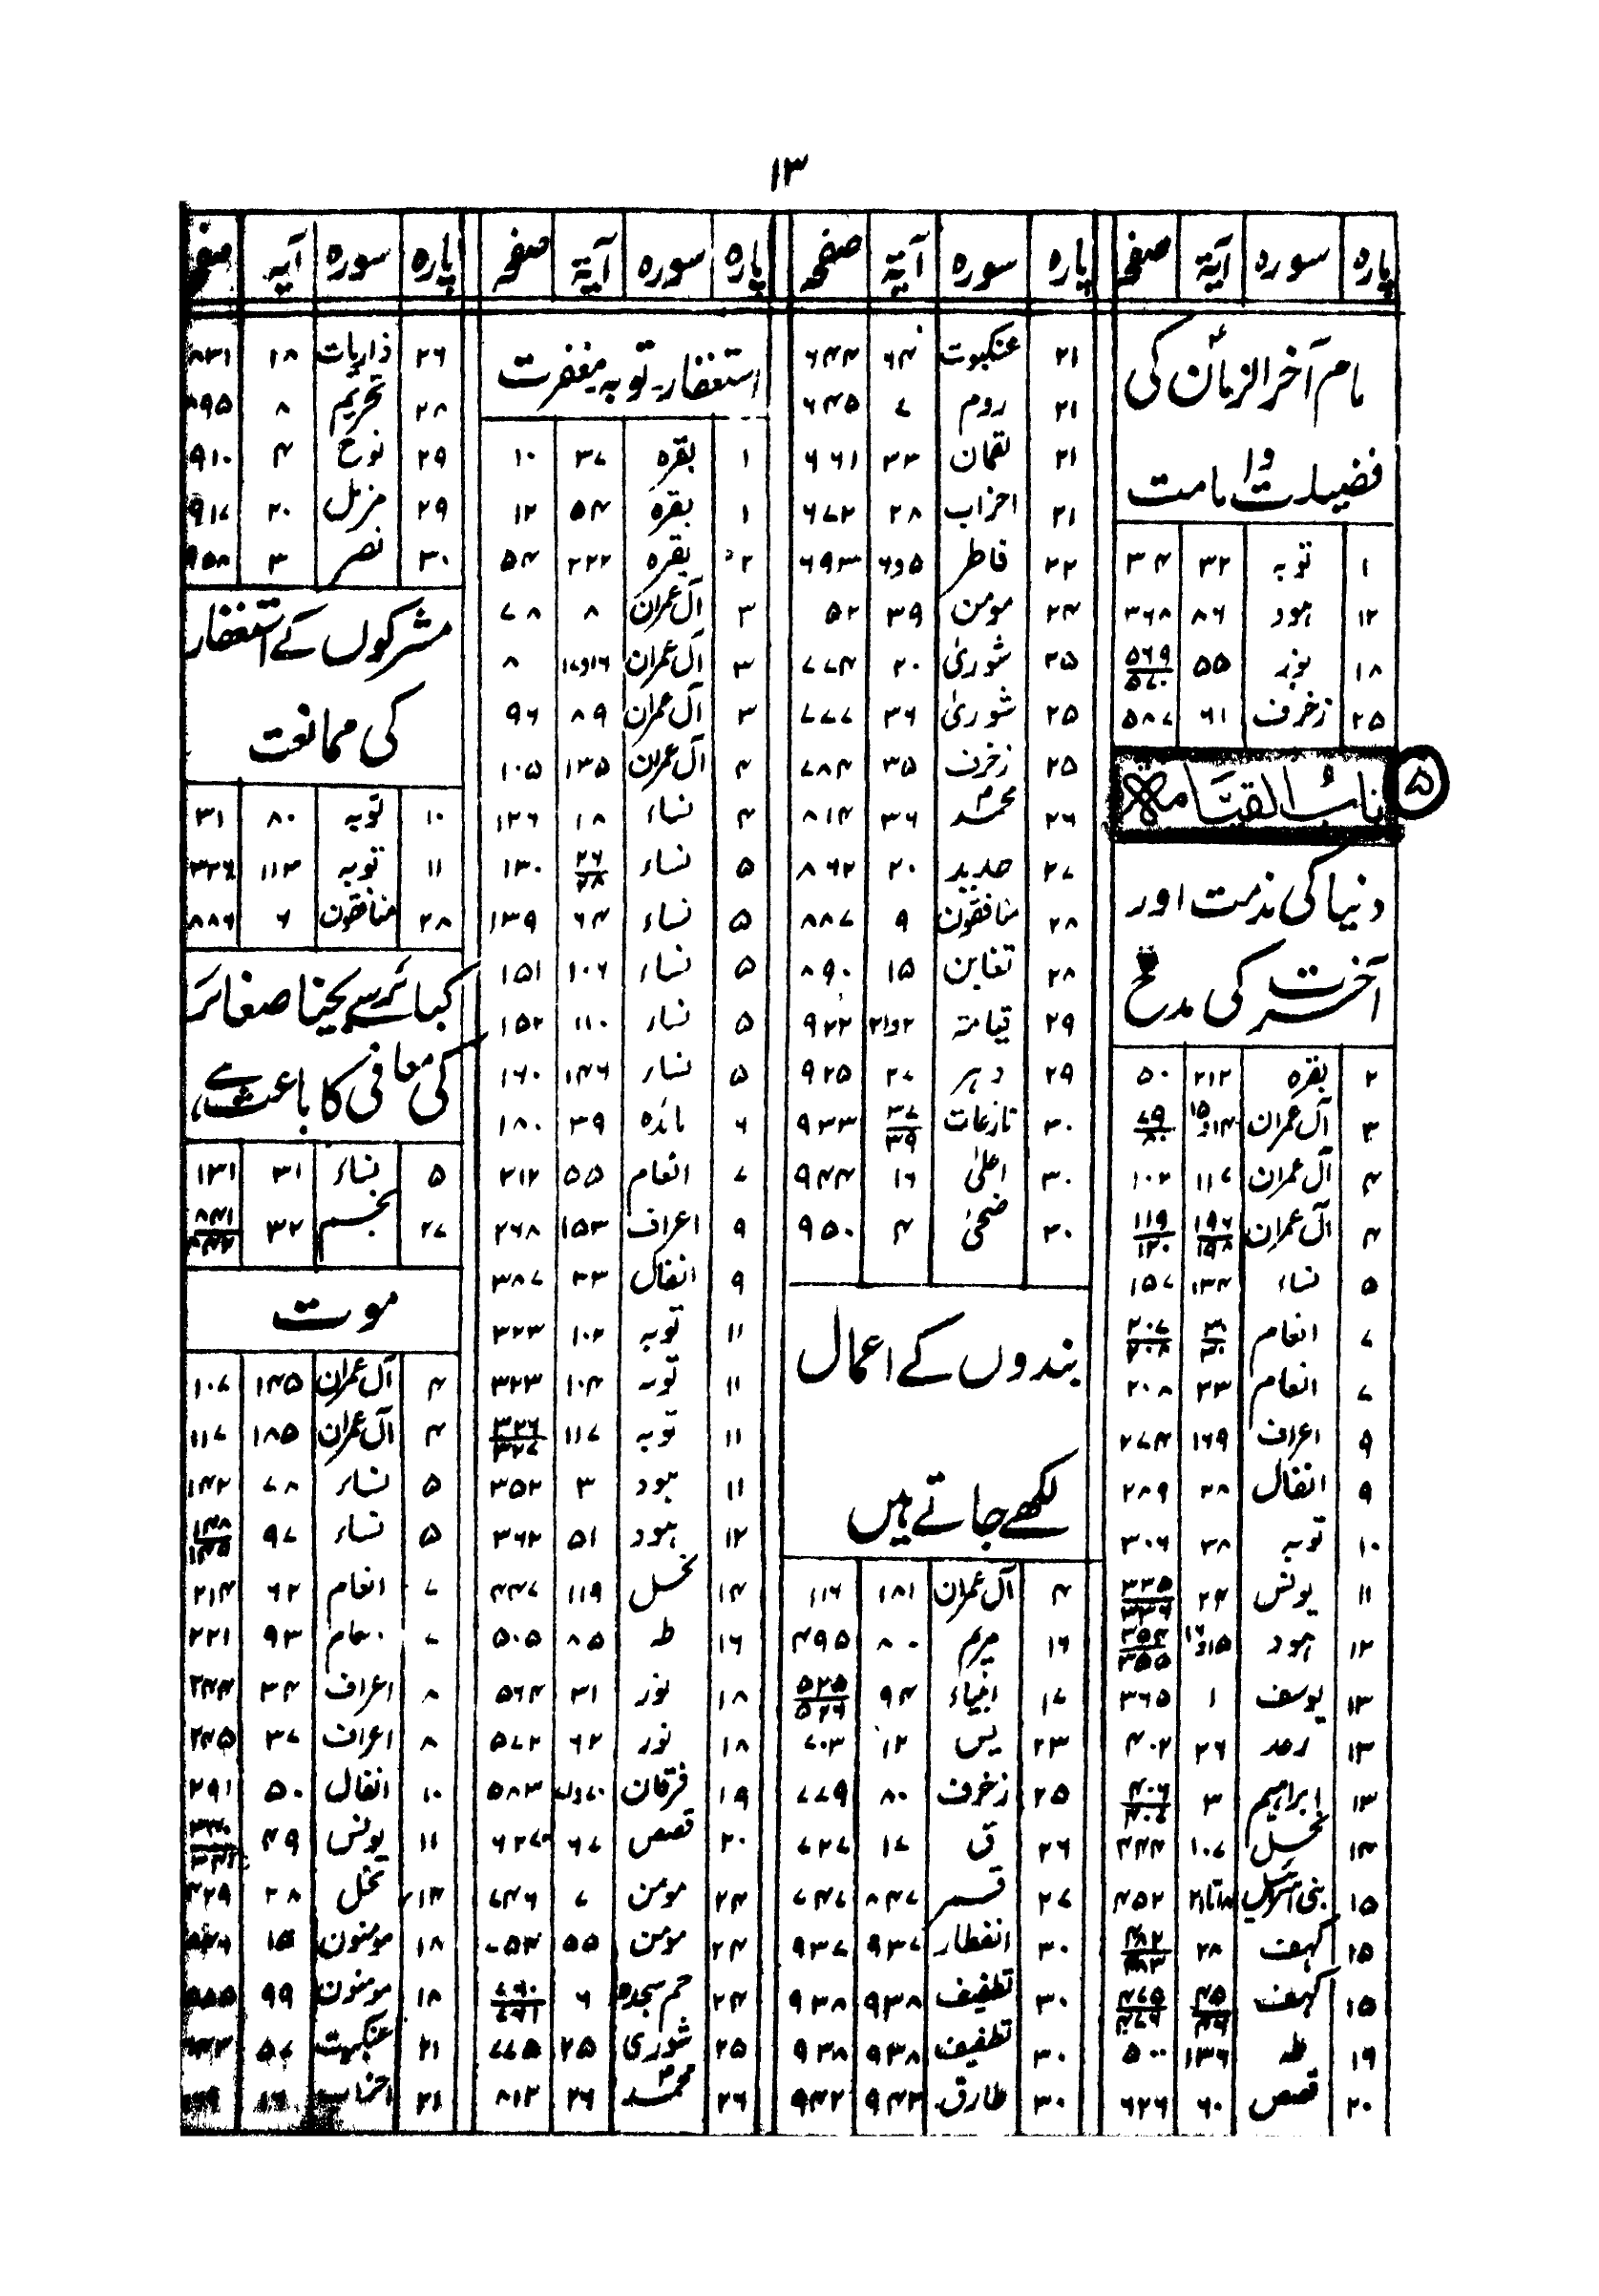 ۱۳
پارہ سورہ آیۃ صفحہ
امام آخر الزمانؑ کی
فضیلت و امامت
۱ توبہ ۳۲ ۳۴
۱۲ ہود ۸۶ ۳۶۸
۱۸ نور ۵۵ ۵۶۹/۵۷۰
۲۵ زخرف ۶۱ ۵۸۷
۵ باب القیامۃ
دنیا کی مذمت اور
آخرت کی مدح
۲ بقرہ ۲۱۲ ۵۰
۳ آل عمران ۱۴و۱۵ ۷۹/۸۰
۴ آل عمران ۱۱۷ ۱۰۲
۴ آل عمران ۱۹۶/۱۹۸ ۱۱۹/۱۲۰
۵ نساء ۱۳۴ ۱۵۷
۷ انعام ۲۰۷/۲۰۸
۷ انعام ۳۳ ۲۰۸
۹ اعراف ۱۶۹ ۲۷۴
۹ انفال ۲۸ ۲۸۹
۱۰ توبہ ۳۸ ۳۰۶
۱۱ یونس ۲۴ ۳۳۵/۳۳۶
۱۲ ہود ۱۵و۱۶ ۳۵۴/۳۵۵
۱۳ یوسف ۱ ۳۶۵
۱۳ رعد ۲۶ ۴۰۲
۱۳ ابراہیم ۳ ۴۰۶/۴۰۷
۱۴ نحل ۱۰۷ ۴۴۴
۱۵ بنی اسرائیل ۱۸تا۲۱ ۴۵۲
۱۵ کہف ۲۸ ۴۸۲/۴۸۳
۱۵ کہف ۴۵/۴۶ ۴۷۵/۴۷۶
۱۶ طہ ۱۳۶ ۵۰۰
۲۰ قصص ۶۰ ۶۲۶
پارہ سورہ آیۃ صفحہ
۲۱ عنکبوت ۶۴ ۶۴۴
۲۱ روم ۷ ۶۴۵
۲۱ لقمان ۳۳ ۶۶۱
۲۱ احزاب ۲۸ ۶۷۲
۲۲ فاطر ۵و۶ ۶۹۳
۲۴ مومن ۳۹ ۵۲
۲۵ شوریٰ ۲۰ ۷۷۴
۲۵ شوریٰ ۳۶ ۷۷۷
۲۵ زخرف ۳۵ ۷۸۴
۲۶ محمدؐ ۳۶ ۸۱۴
۲۷ حدید ۲۰ ۸۶۲
۲۸ منافقون ۹ ۸۸۷
۲۸ تغابن ۱۵ ۸۹۰
۲۹ قیامتہ ۲و۲۱ ۹۲۲
۲۹ دہر ۲۷ ۹۲۵
۳۰ نازعات ۳۷/۳۹ ۹۳۳
۳۰ اعلیٰ ۱۶ ۹۴۴
۳۰ ضحیٰ ۴ ۹۵۰
بندوں کے اعمال
لکھے جاتے ہیں
۴ آل عمران ۱۸۱ ۱۱۶
۱۶ مریم ۸۰ ۴۹۵
۱۷ انبیاء ۹۴ ۵۲۵/۵۲۶
۲۳ یس ۱۲ ۷۰۳
۲۵ زخرف ۸۰ ۷۷۹
۲۶ ق ۱۷ ۷۲۷
۲۷ قمر ۸۴۷ ۷۴۷
۳۰ انفطار ۹۳۷ ۹۳۷
۳۰ تطفیف ۹۳۸ ۹۳۸
۳۰ تطفیف ۹۳۸ ۹۳۸
۳۰ طارق ۹۴۳ ۹۴۲
پارہ سورہ آیۃ صفحہ
استغفار۔ توبہ مغفرت
۱ بقرہ ۳۷ ۱۰
۱ بقرہ ۵۴ ۱۲
۲ بقرہ ۲۲۲ ۵۴
۳ آل عمران ۸ ۷۸
۳ آل عمران ۱۶و۱۷ ۸
۳ آل عمران ۸۹ ۹۶
۴ آل عمران ۱۳۵ ۱۰۵
۴ نساء ۱۸ ۱۲۶
۵ نساء ۲۶/۲۸ ۱۳۰
۵ نساء ۶۴ ۱۳۹
۵ نساء ۱۰۶ ۱۵۱
۵ نساء ۱۱۰ ۱۵۲
۵ نساء ۱۴۶ ۱۶۰
۶ مائدہ ۳۹ ۱۸۰
۷ انعام ۵۵ ۲۱۲
۹ اعراف ۱۵۳ ۲۶۸
۹ انفال ۳۳ ۳۸۷
۱۱ توبہ ۱۰۲ ۳۲۳
۱۱ توبہ ۱۰۴ ۳۲۳
۱۱ توبہ ۱۱۷ ۳۲۶/۳۲۷
۱۱ ہود ۳ ۳۵۲
۱۲ ہود ۵۱ ۳۶۲
۱۴ نحل ۱۱۹ ۴۴۷
۱۶ طہ ۸۵ ۵۰۵
۱۸ نور ۳۱ ۵۶۴
۱۸ نور ۶۲ ۵۷۲
۱۹ فرقان ۷۰و۷۱ ۵۸۳
۲۰ قصص ۶۷ ۶۲۷
۲۴ مومن ۷ ۷۴۶
۲۴ مومن ۵۵ ۷۵۳
۲۴ حم سجدہ ۶ ۷۶۰/۷۶۱
۲۵ شوری ۲۵ ۷۷۵
۲۶ محمدؐ ۲۶ ۸۱۲
پارہ سورہ آیہ صفحہ
۲۶ ذاریات ۱۸ ۸۳۱
۲۸ تحریم ۸ ۸۹۵
۲۹ نوح ۴ ۹۱۰
۲۹ مزمل ۲۰ ۹۱۷
۳۰ نصر ۳ ۹۵۸
مشرکوں کے استغفار
کی ممانعت
۱۰ توبہ ۸۰ ۳۱
۱۱ توبہ ۱۱۳ ۳۲۶
۲۸ منافقون ۶ ۸۸۶
کبائر سے بچنا صغائر
کی معافی کا باعث ہے
۵ نساء ۳۱ ۱۳۱
۲۷ نجم ۳۲ ۸۴۱/۸۴۲
موت
۴ آل عمران ۱۴۵ ۱۰۷
۴ آل عمران ۱۸۵ ۱۱۷
۵ نساء ۷۸ ۱۴۲
۵ نساء ۹۷ ۱۴۸/۱۴۹
۷ انعام ۶۲ ۲۱۴
۷ انعام ۹۳ ۲۲۱
۸ اعراف ۳۴ ۲۴۴
۸ اعراف ۳۷ ۲۴۵
۱۰ انفال ۵۰ ۲۹۱
۱۱ یونس ۴۹ ۳۴۰/۳۴۱
۱۴ نحل ۲۸ ۴۲۹
۱۸ مومنون ۱۵
۱۸ مومنون ۹۹ ۵۵۵
۲۱ عنکبوت ۵۷
۲۱ احزاب ۱۶